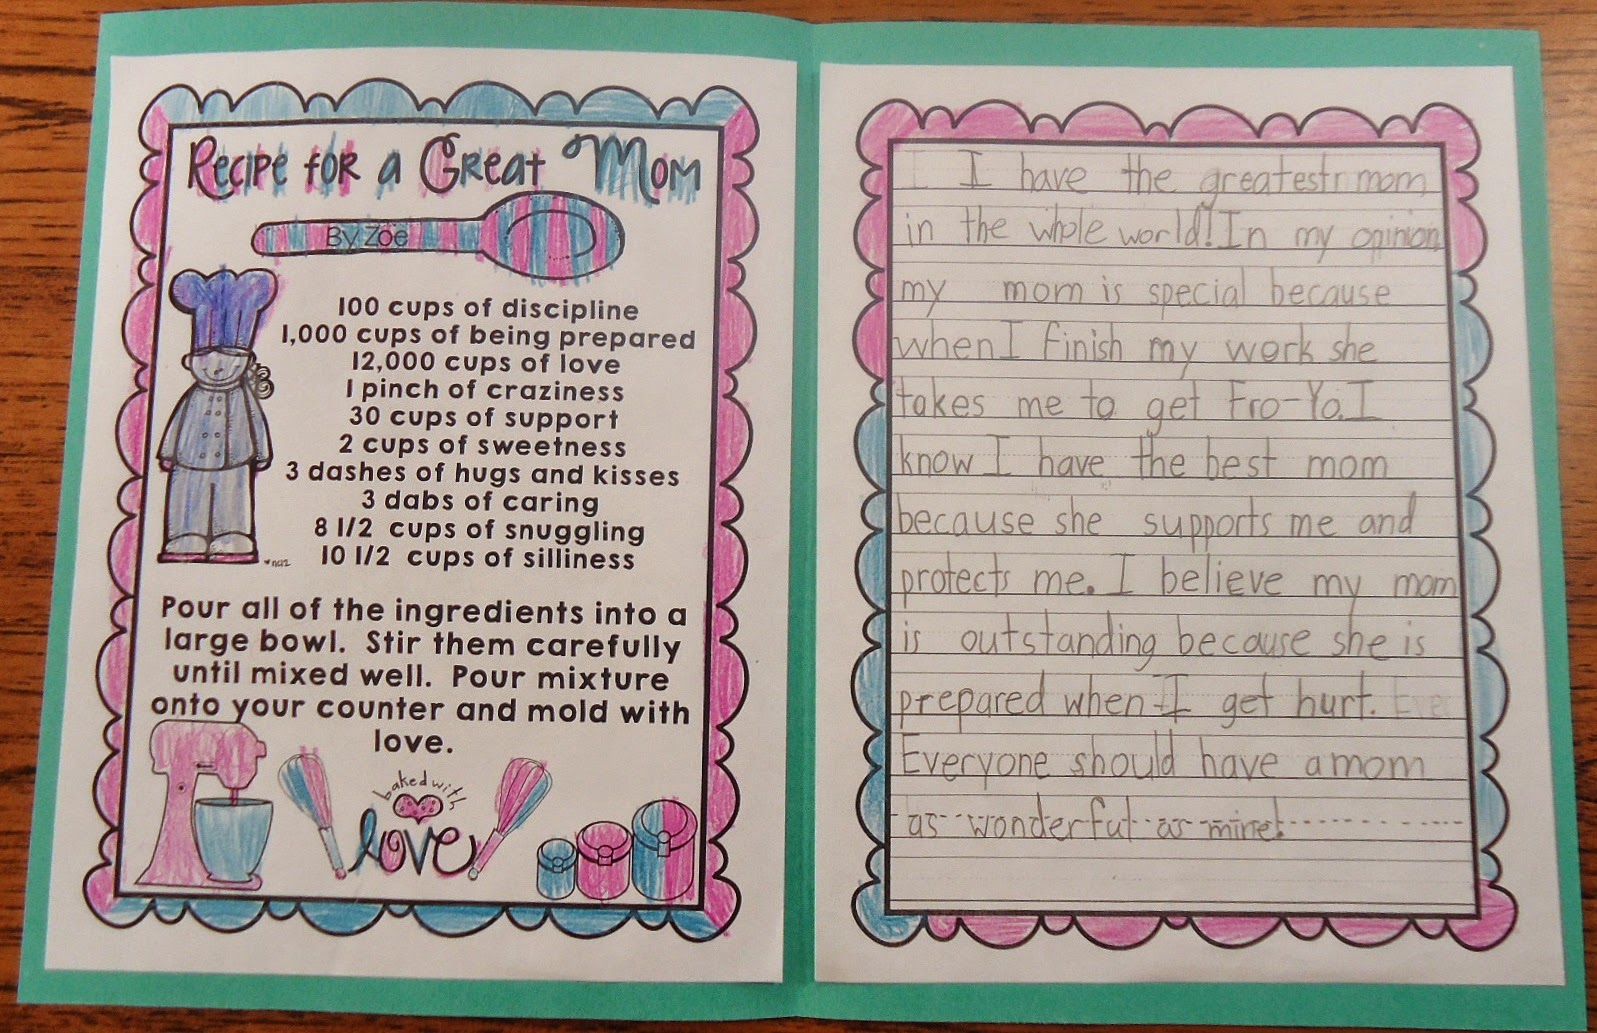 Recipe for a Great Mom
By Zoe
100 cups of discipline
1,000 cups of being prepared
12,000 cups of love
1 pinch of craziness
30 cups of support
2 cups of sweetness
3 dashes of hugs and kisses
3 dabs of caring
8 1/2 cups of snuggling
10 1/2 cups of silliness
Pour all of the ingredients into a
large bowl. Stir them carefully
until mixed well. Pour mixture
onto your counter and mold with
love.
baked with
love
I have the greatest mom
in the whole world! In my opinion,
my mom is special because
when I finish my work she
takes me to get Fro-Yo. I
know I have the best mom
because she supports me and
protects me. I believe my mom
is outstanding because she is
prepared when I get hurt.
Everyone should have a mom
as wonderful as mine!